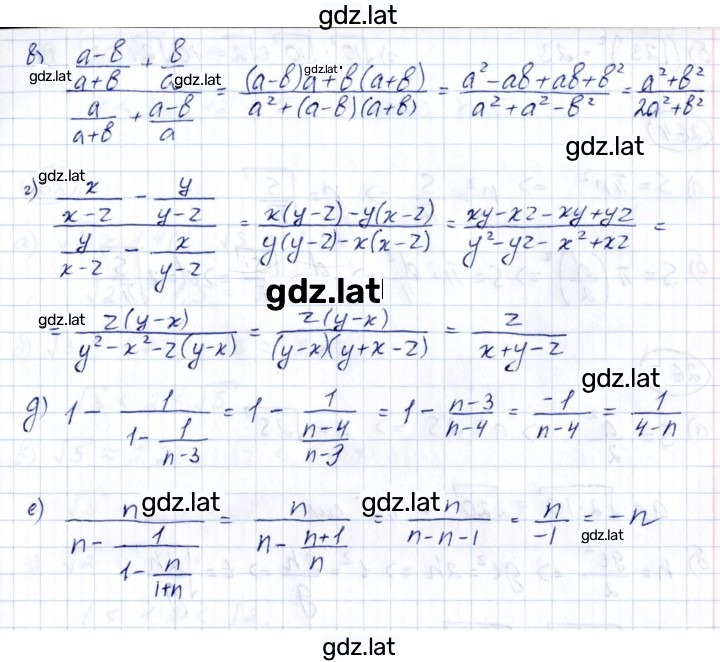 gdz.lat
в) ((a-в)/(a+в) + в/a)/(a/(a+в) + (a-в)/a) = ((a-в)a+в(a+в))/(a²+(a-в)(a+в)) = (a²-aв+aв+в²)/(a²+a²-в²) = (a²+в²)/(2a²+в²)
gdz.lat gdz.lat
gdz.lat
gdz.lat
г) (x/(x-z) - y/(y-z))/(y/(x-z) - x/(y-z)) = (x(y-z)-y(x-z))/(y(y-z)-x(x-z)) = (xy-xz-xy+yz)/(y²-yz-x²+xz) =
gdz.lat
gdz.lat
= z(y-x)/(y²-x²-z(y-x)) = z(y-x)/((y-x)(y+x-z)) = z/(x+y-z)
gdz.lat
д) 1 - 1/(1 - 1/(n-3)) = 1 - 1/((n-4)/(n-3)) = 1 - (n-3)/(n-4) = -1/(n-4) = 1/(4-n)
gdz.lat gdz.lat
е) n/(n - 1/(1 - n/(1+n))) = n/(n - (n+1)/n) = n/(n-n-1) = n/-1 = -n
gdz.lat
gdz.lat